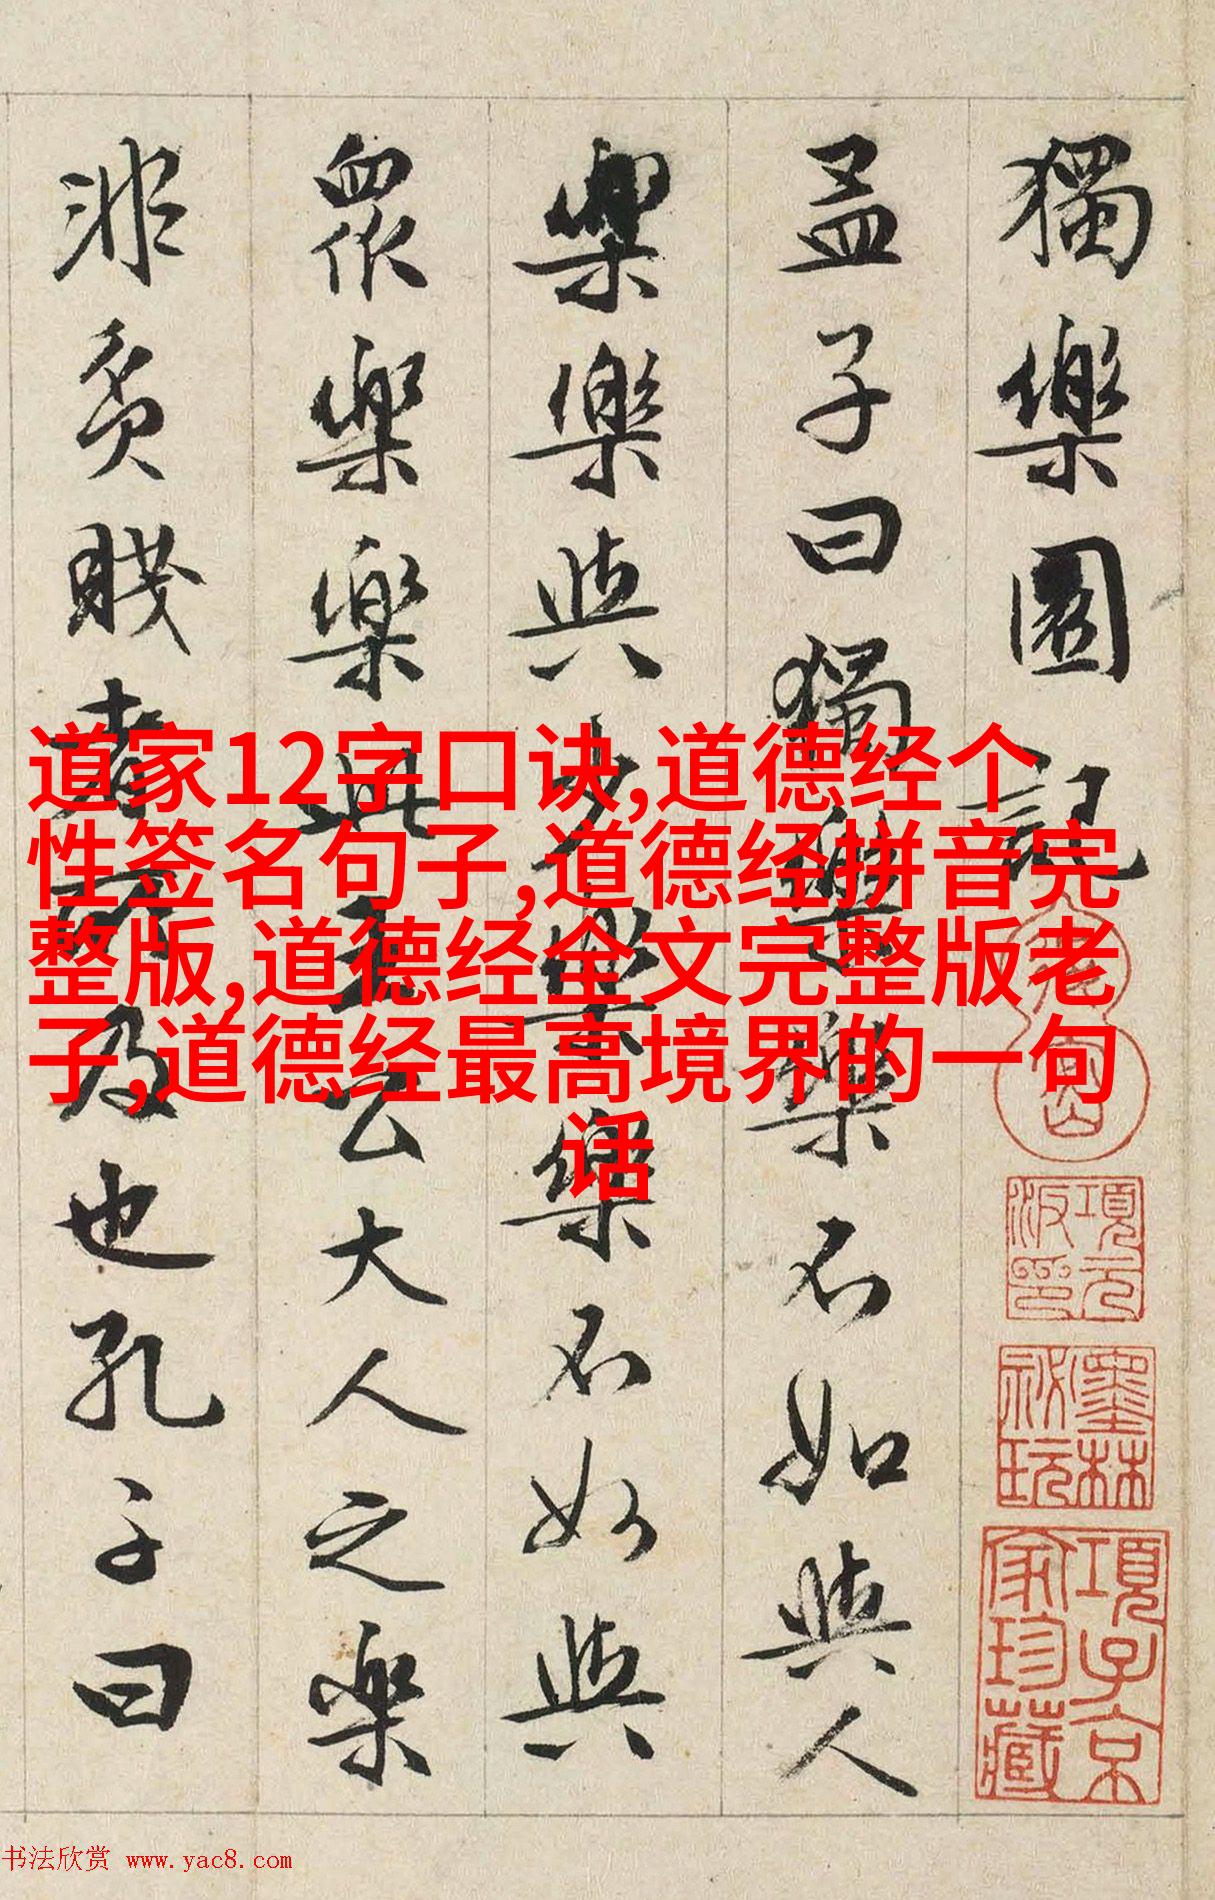 獨樂園記
孟子曰獨樂樂不如與人
樂樂與少樂樂不如與
衆樂樂此王公大人之樂
非貧賤者所及也孔子曰
道家12字口诀,道德经个
性签名句子,道德经拼音完
整版,道德经全文完整版老
子,道德经最高境界的一句
话
項元汴印
墨林祕玩
項子京家珍藏
书法欣赏 www.yac8.com